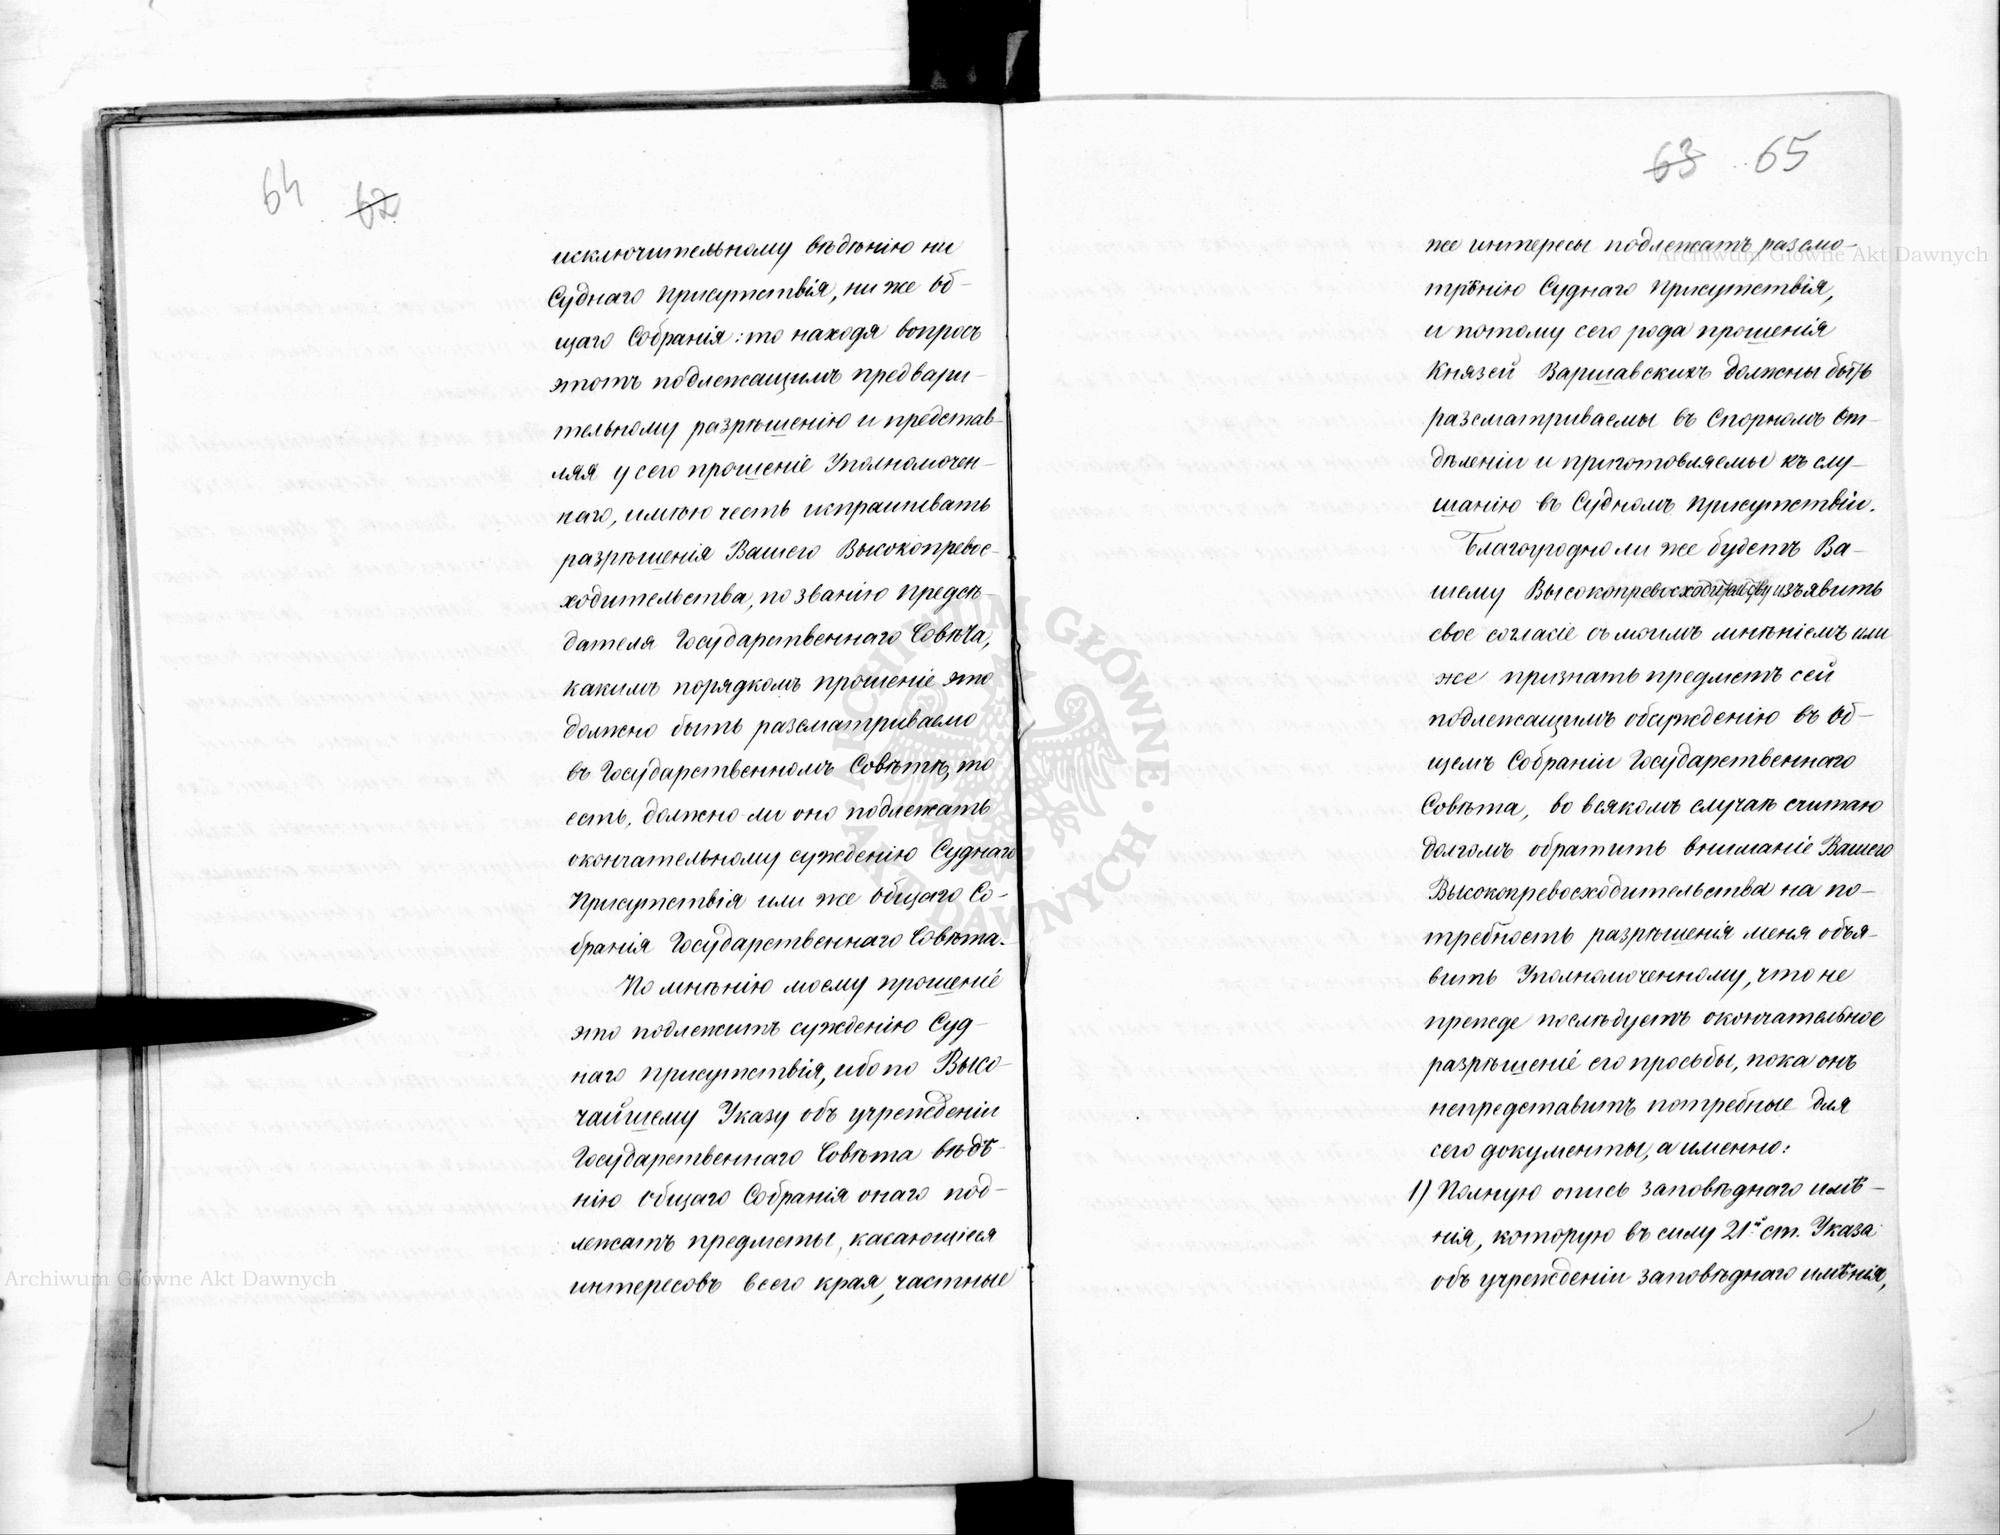 64 62
исключительному вѣдѣнію ни
Суднаго Присутствія, ни же Об-
щаго Собранія: то находя вопросъ
этотъ подлежащимъ предвари-
тельному разрѣшенію и представ-
ляя у сего прошеніе Уполномочен-
наго, имѣю честь испрашивать
разрѣшенія Вашего Высокопревос-
ходительства, по званію Предсѣ-
дателя Государственнаго Совѣта,
какимъ порядкомъ прошеніе это
должно быть разсматриваемо
въ Государственномъ Совѣтѣ, то
есть, должно-ли оно подлежать
окончательному сужденію Суднаго
Присутствія или же общаго Со-
бранія Государственнаго Совѣта.
По мнѣнію моему прошеніе
это подлежитъ сужденію Суд-
наго присутствія, ибо по Высо-
чайшему Указу объ учрежденіи
Государственнаго Совѣта вѣдѣ-
нію общаго Собранія онаго под-
лежатъ предметы, касающіеся
интересовъ всего края, частные
63 65
же интересы подлежатъ разсмо-
трѣнію Суднаго Присутствія,
и потому сего рода прошенія
Князей Варшавскихъ должны быть
разсматриваемы въ Спорномъ От-
дѣленіи и приготовляемы къ слу-
шанію въ Судномъ Присутствіи.
Благоугодно ли же будетъ Ва-
шему Высокопревосходительству изъявить
свое согласіе съ моимъ мнѣніемъ или
же признать предметъ сей
подлежащимъ обсужденію въ Об-
щемъ Собраніи Государственнаго
Совѣта, во всякомъ случаѣ считаю
долгомъ обратить вниманіе Вашего
Высокопревосходительства на по-
требность разрѣшенія меня объя-
вить Уполномоченному, что не
прежде послѣдуетъ окончательное
разрѣшеніе его просьбы, пока онъ
непредставитъ потребные для
сего документы, а именно:
1) Полную опись заповѣднаго имѣ-
нія, которую въ силу 21й ст. Указа
объ учрежденіи заповѣднаго имѣнія,
Archiwum Główne Akt Dawnych
Archiwum Główne Akt Dawnych
ARCHIWUM GŁÓWNE AKT DAWNYCH